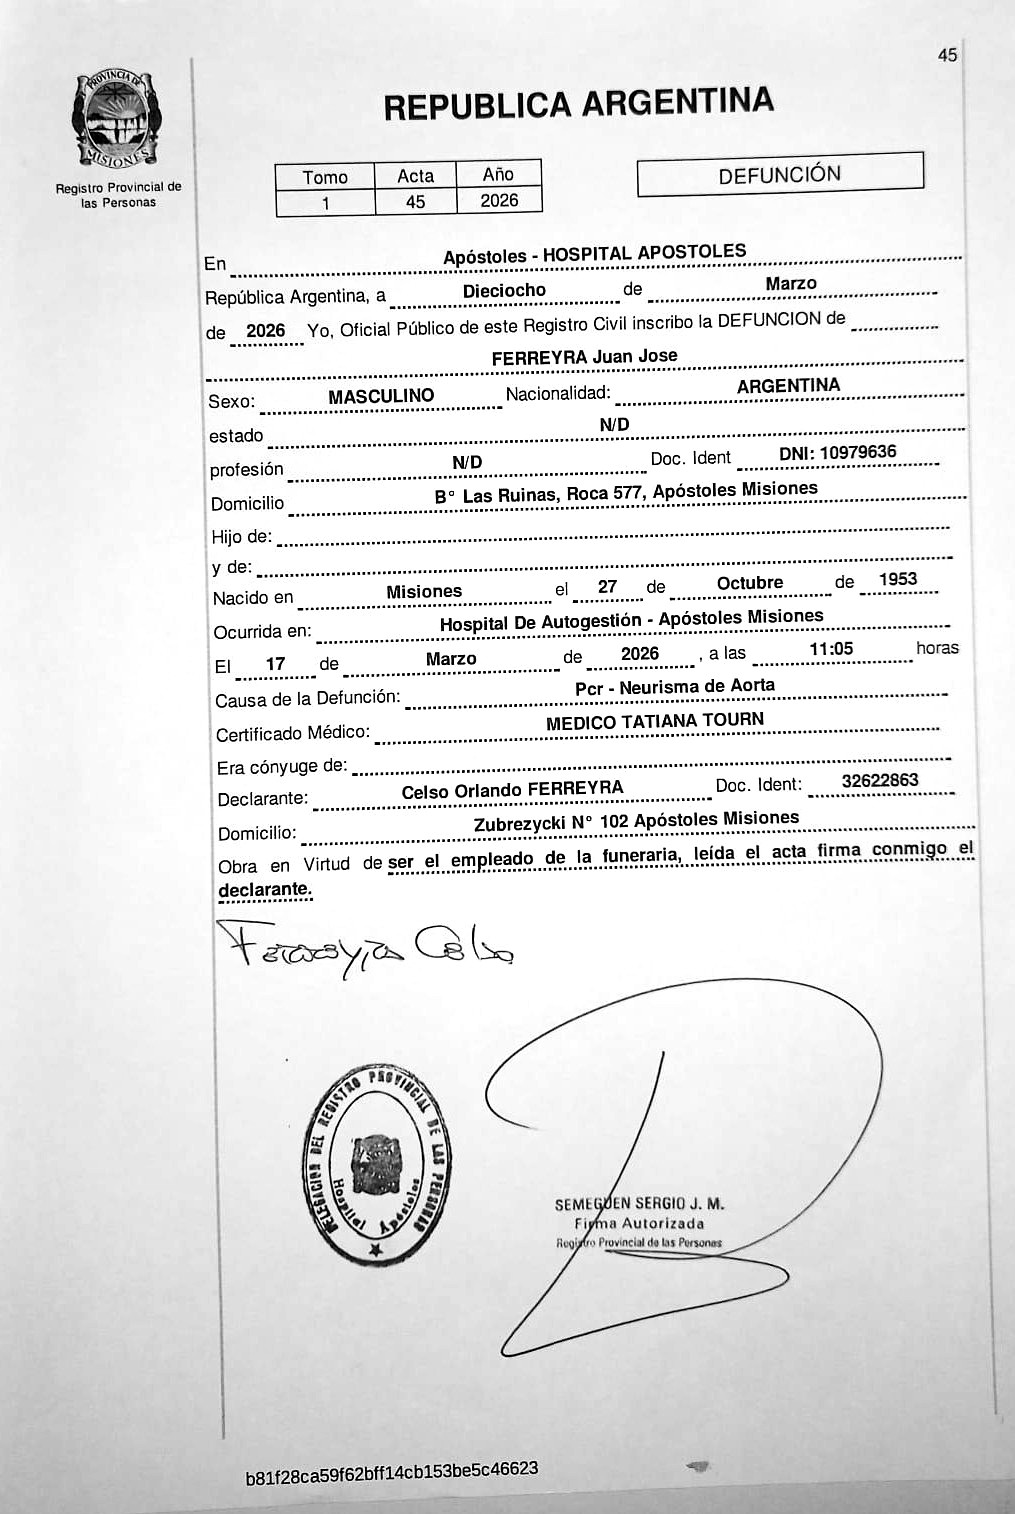 45
PROVINCIA DE
MISIONES
Registro Provincial de
las Personas
REPUBLICA ARGENTINA
Tomo Acta Año
1 45 2026
DEFUNCIÓN
En Apóstoles - HOSPITAL APOSTOLES
República Argentina, a Dieciocho de Marzo
de 2026 Yo, Oficial Público de este Registro Civil inscribo la DEFUNCION de
FERREYRA Juan Jose
Sexo: MASCULINO Nacionalidad: ARGENTINA
estado N/D
profesión N/D Doc. Ident DNI: 10979636
Domicilio B° Las Ruinas, Roca 577, Apóstoles Misiones
Hijo de:
y de:
Nacido en Misiones el 27 de Octubre de 1953
Ocurrida en: Hospital De Autogestión - Apóstoles Misiones
El 17 de Marzo de 2026 , a las 11:05 horas
Causa de la Defunción: Pcr - Neurisma de Aorta
Certificado Médico: MEDICO TATIANA TOURN
Era cónyuge de:
Declarante: Celso Orlando FERREYRA Doc. Ident: 32622863
Domicilio: Zubrezycki N° 102 Apóstoles Misiones
Obra en Virtud de ser el empleado de la funeraria, leída el acta firma conmigo el
declarante.
Ferreyra Celso
DELEGACION DEL REGISTRO PROVINCIAL DE LAS PERSONAS
Hospital Apóstoles
SEMEGUEN SERGIO J. M.
Firma Autorizada
Registro Provincial de las Personas
b81f28ca59f62bff14cb153be5c46623